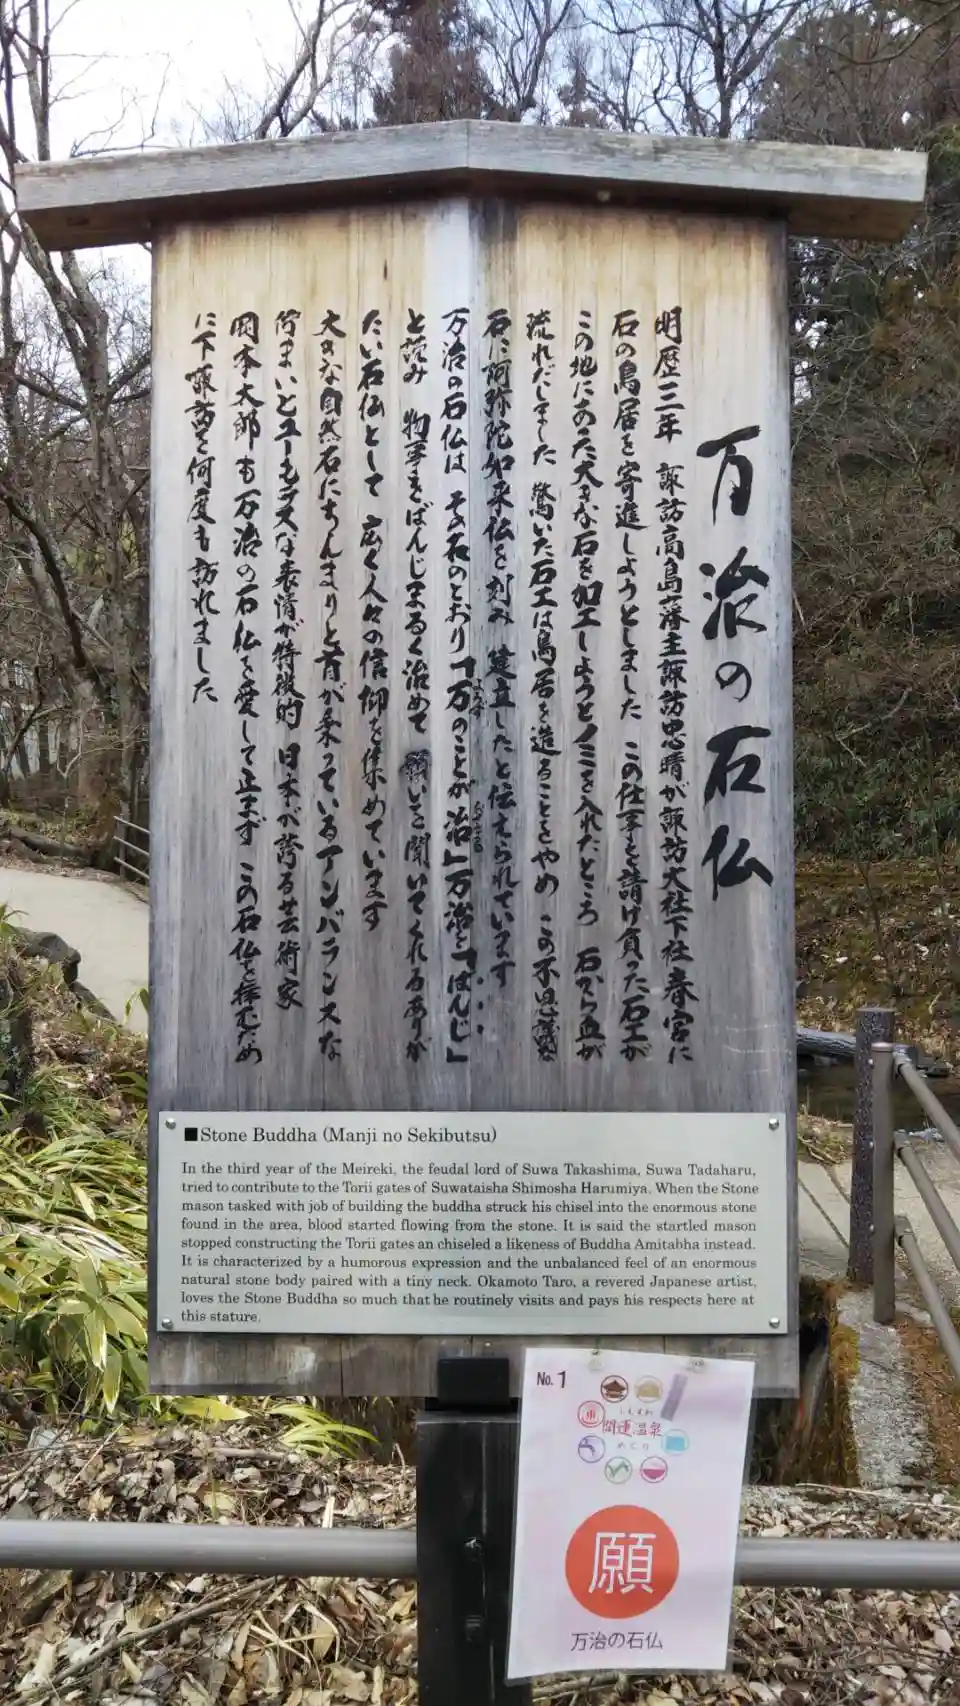 万治の石仏
明歴三年 諏訪高島藩主諏訪忠晴が諏訪大社下社春宮に
石の鳥居を寄進しようとしました この仕事を請け負った石工が
この地にあった大きな石を加工しようとノミを入れたところ 石から血が
流れだしました 驚いた石工は鳥居を造ることをやめ この不思議な
石に阿弥陀如来仏を刻み 建立したと伝えられています
万治の石仏は その名のとおり「万のことが治」万治を「ばんじ」
と読み 物事をばんじまるく治めて 願いを聞いてくれるありが
たい石仏として 広く人々の信仰を集めています
大きな自然石にちんまりと首が乗っているアンバランスな
佇まいとユーモラスな表情が特徴的 日本が誇る芸術家
岡本太郎も万治の石仏を愛して止まず この石仏を拝むため
に下諏訪を何度も訪れました
■Stone Buddha (Manji no Sekibutsu)
In the third year of the Meireki, the feudal lord of Suwa Takashima, Suwa Tadaharu,
tried to contribute to the Torii gates of Suwataisha Shimosha Harumiya. When the Stone
mason tasked with job of building the buddha struck his chisel into the enormous stone
found in the area, blood started flowing from the stone. It is said the startled mason
stopped constructing the Torii gates an chiseled a likeness of Buddha Amitabha instead.
It is characterized by a humorous expression and the unbalanced feel of an enormous
natural stone body paired with a tiny neck. Okamoto Taro, a revered Japanese artist,
loves the Stone Buddha so much that he routinely visits and pays his respects here at
this stature.
No. 1
しもすわ
開運温泉
めぐり
願
万治の石仏